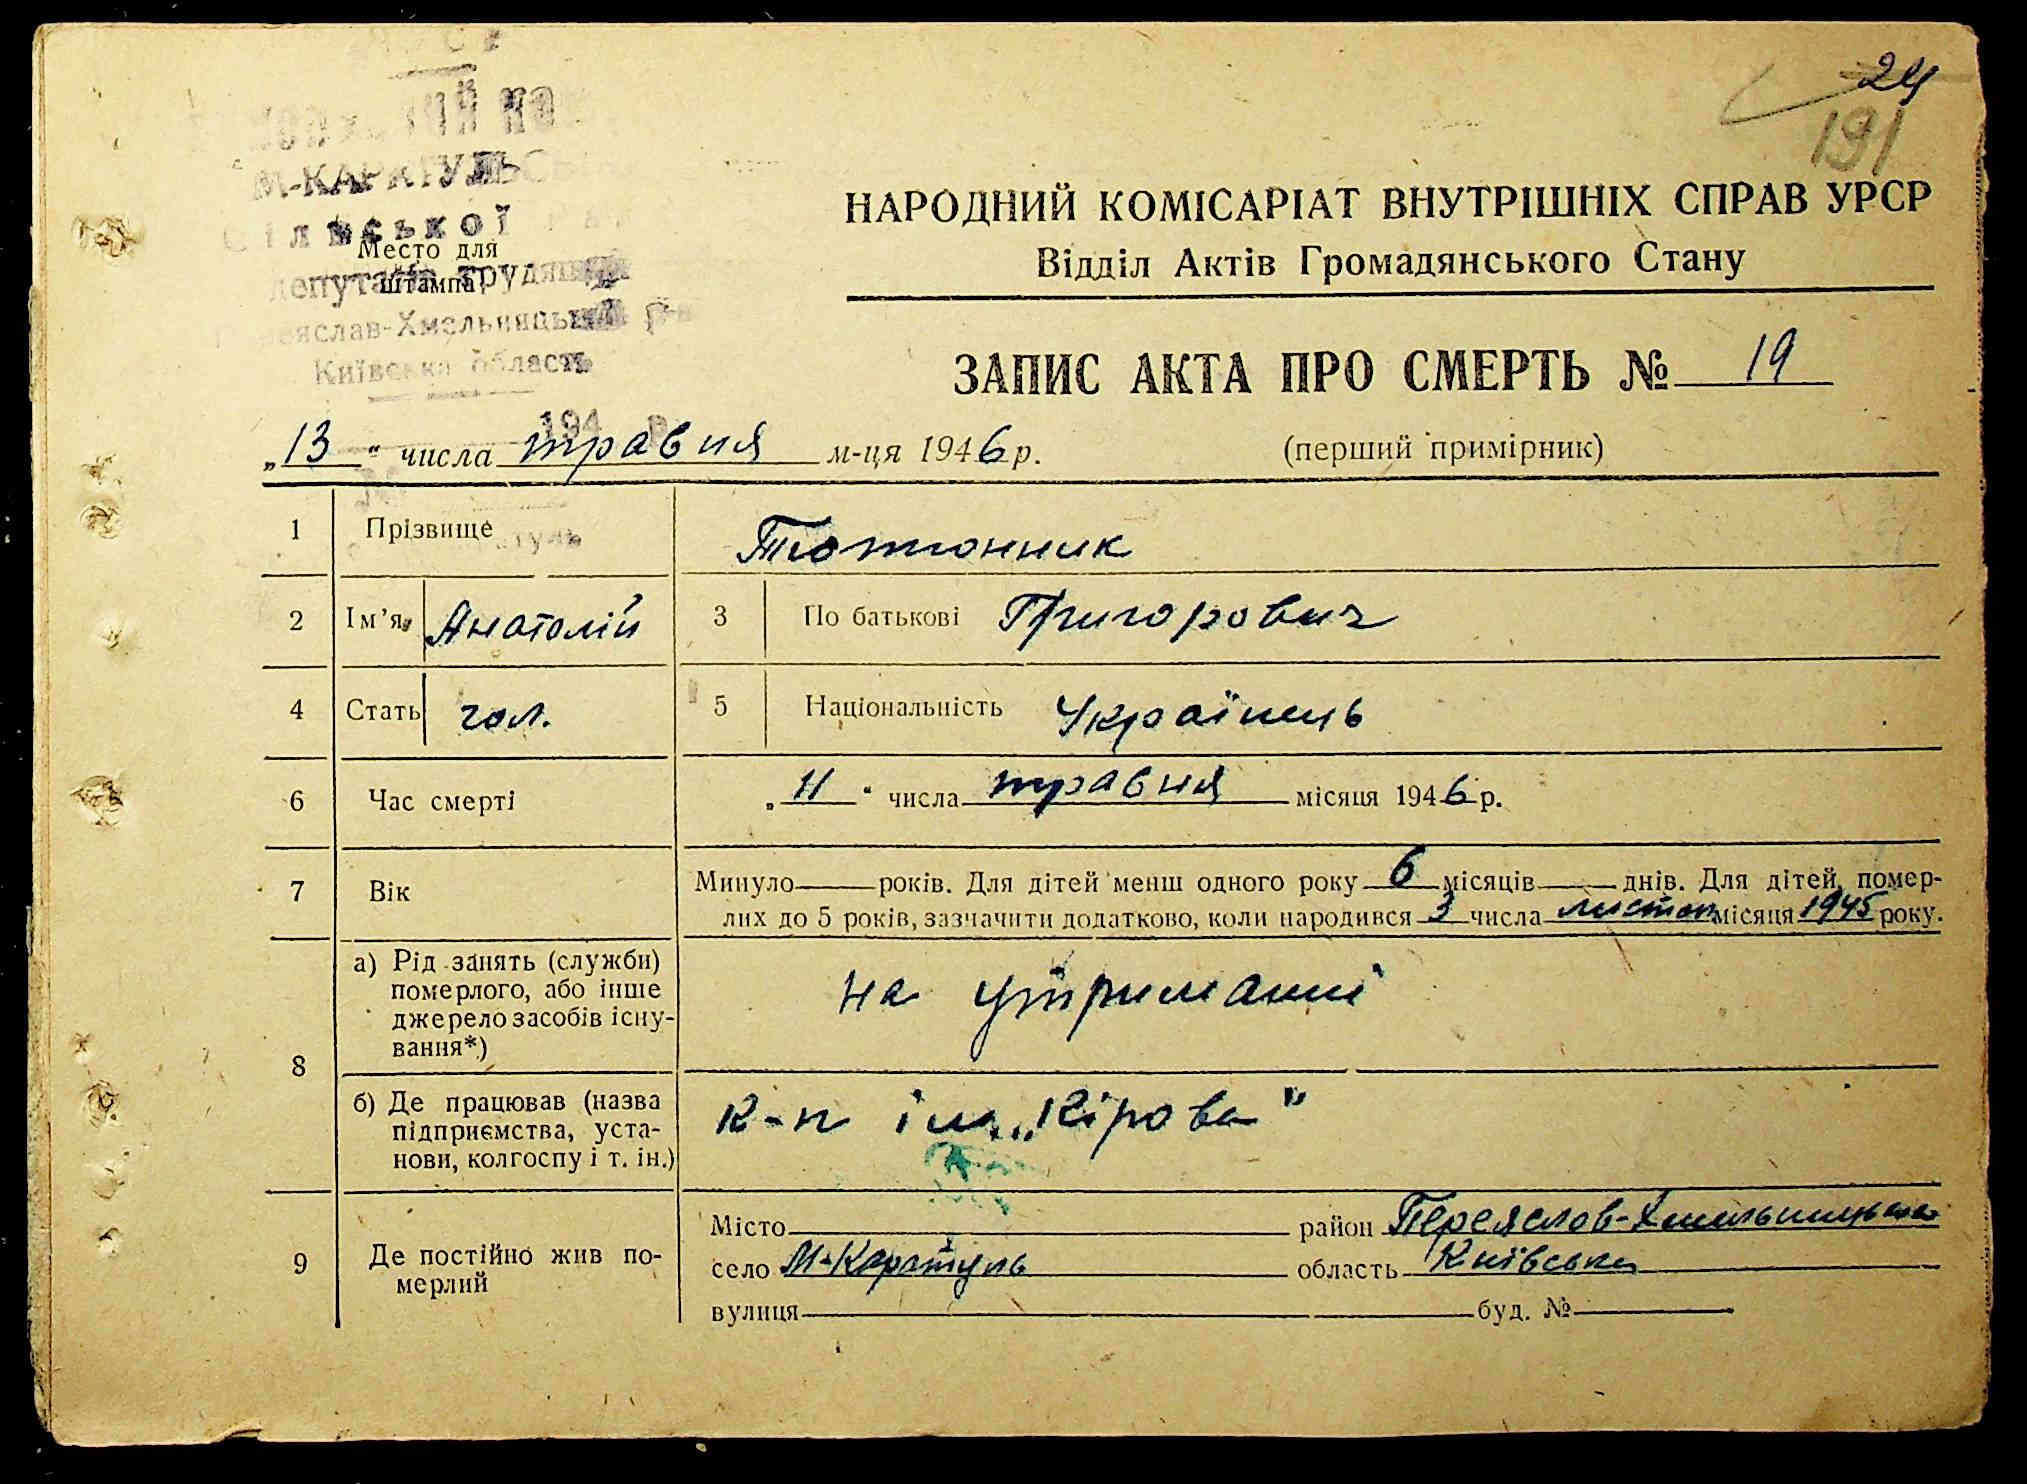 24
191
М-КАРАТУЛЬСЬ
Сільської
Место для
штампа
депутатів трудящих
Переяслав-Хмельницький р-н
Київська область
194 р.
НАРОДНИЙ КОМІСАРІАТ ВНУТРІШНІХ СПРАВ УРСР
Відділ Актів Громадянського Стану
ЗАПИС АКТА ПРО СМЕРТЬ № 19
„13" числа травня м-ця 1946 р. (перший примірник)
1 Прізвище Тютюнник
2 Ім'я Анатолій 3 По батькові Григорович
4 Стать чол. 5 Національність Українець
6 Час смерті „11" числа травня місяця 1946 р.
7 Вік Минуло — років. Для дітей менш одного року 6 місяців — днів. Для дітей, помер-
лих до 5 років, зазначити додатково, коли народився 3 числа листоп місяця 1945 року.
8 а) Рід занять (служби)
померлого, або інше
джерело засобів існу-
вання*)
на утриманні
б) Де працював (назва
підприємства, уста-
нови, колгоспу і т. ін.)
к-п ім. „Кірова"
9 Де постійно жив по-
мерлий
Місто район Переяслов-Хмельницький
село М-Каратуль область Київська
вулиця буд. №